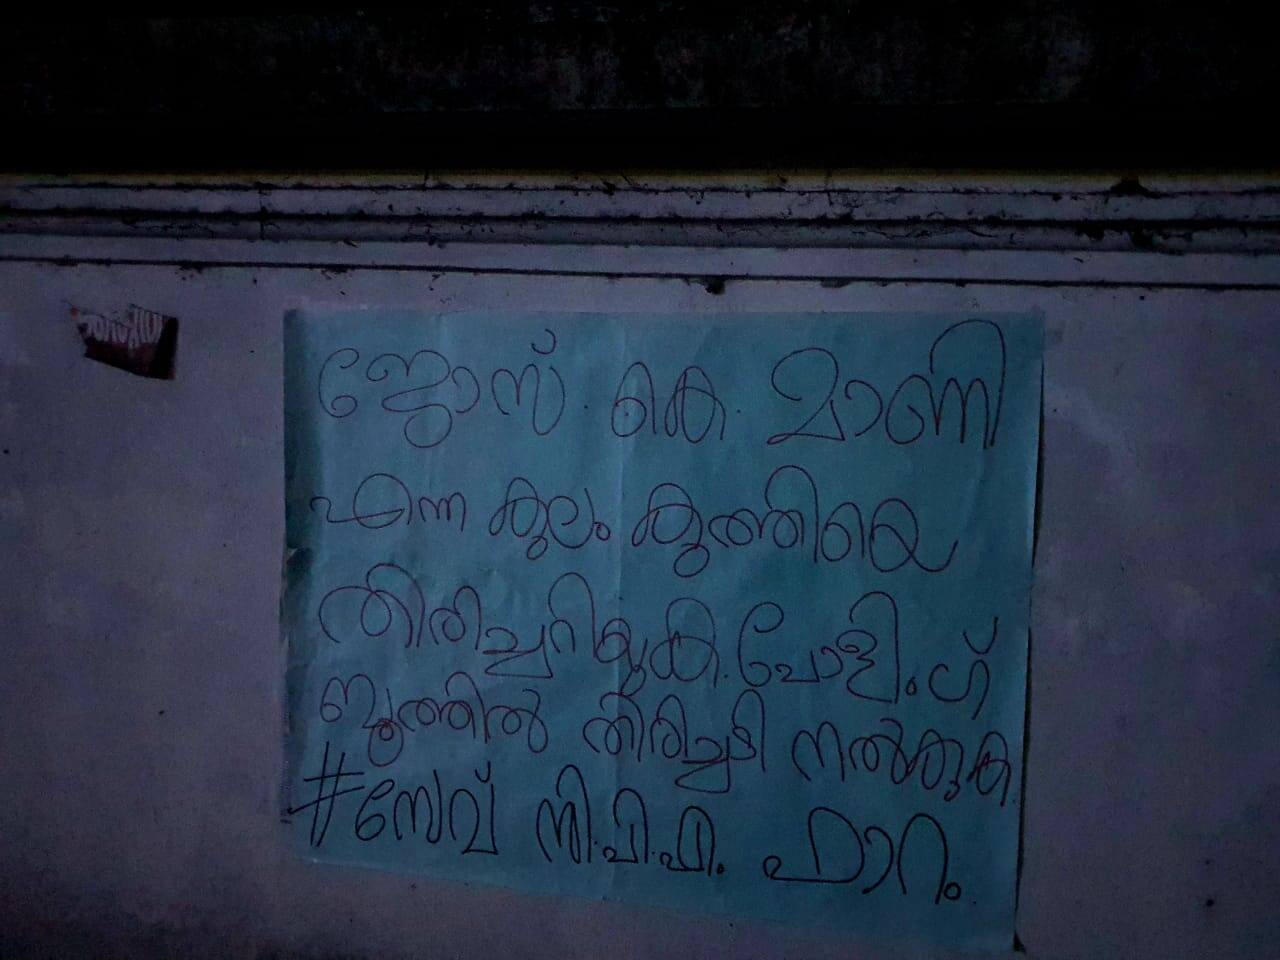 ജോസ് കെ. മാണി
എന്ന കുലം കുത്തിയെ
തിരിച്ചറിയുക. പോളിംഗ്
ബൂത്തിൽ തിരിച്ചടി നൽകുക.
#സേവ് സി.പി.എം. ഫോറം.